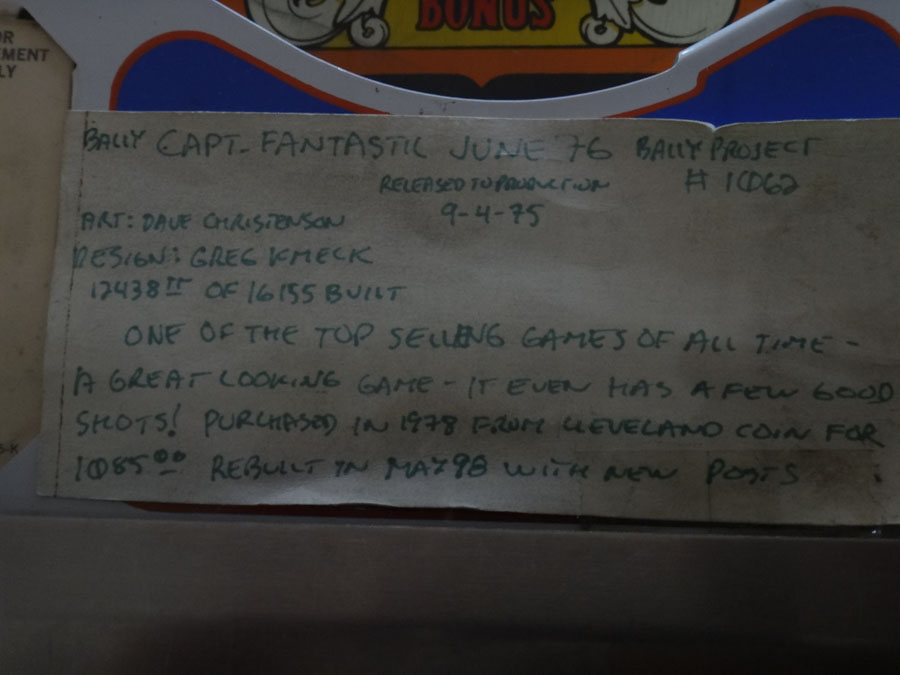 BONUS
OR
EMENT
LY
BALLY CAPT. FANTASTIC JUNE 76 BALLY PROJECT
RELEASED TO PRODUCTION # 1062
ART: DAVE CHRISTENSON 9-4-75
DESIGN: GREG KMECK
12438TH OF 16155 BUILT
ONE OF THE TOP SELLING GAMES OF ALL TIME -
A GREAT LOOKING GAME - IT EVEN HAS A FEW GOOD
SHOTS! PURCHASED IN 1978 FROM CLEVELAND COIN FOR
1085.00 REBUILT IN MAY 98 WITH NEW POSTS